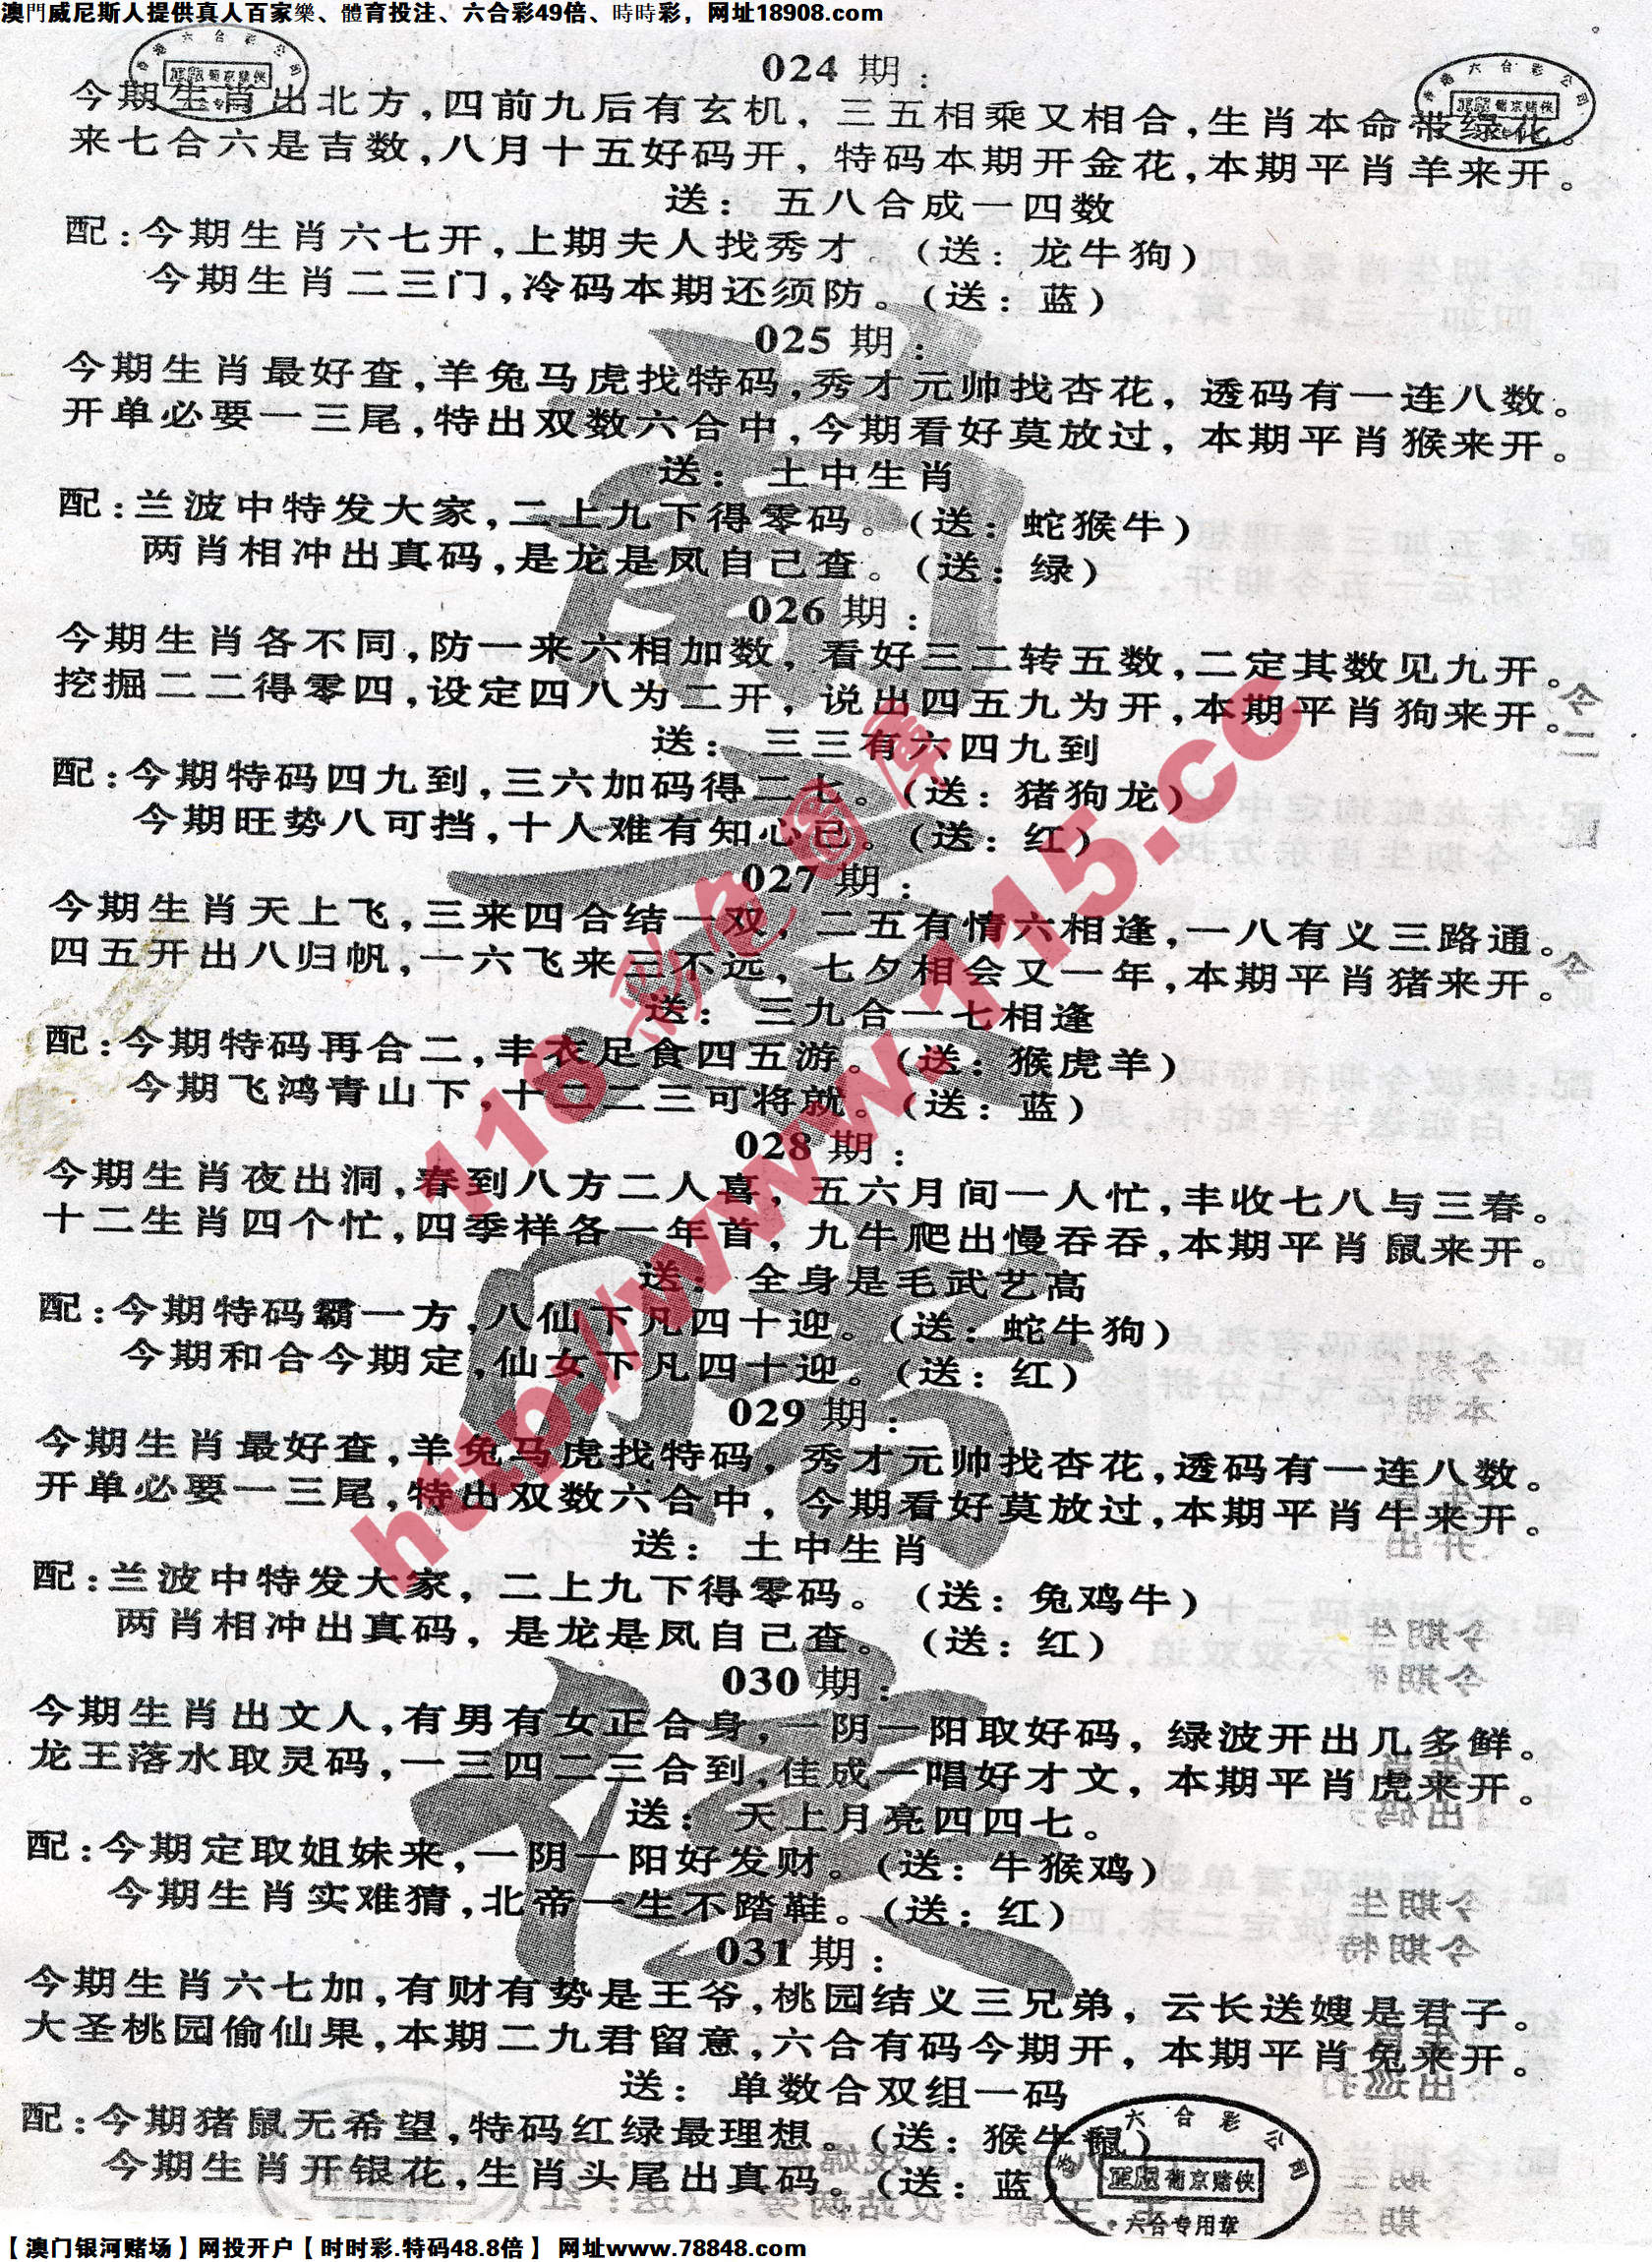 澳門威尼斯人提供真人百家樂、體育投注、六合彩49倍、時時彩，网址18908.com
024 期：
今期生肖出北方，四前九后有玄机，三五相乘又相合，生肖本命带绿花。
来七合六是吉数，八月十五好码开，特码本期开金花，本期平肖羊来开。
送：五八合成一四数
配：今期生肖六七开，上期夫人找秀才。（送：龙牛狗）
今期生肖二三门，冷码本期还须防。（送：蓝）
025 期：
今期生肖最好查，羊兔马虎找特码，秀才元帅找杏花，透码有一连八数。
开单必要一三尾，特出双数六合中，今期看好莫放过，本期平肖猴来开。
送：土中生肖
配：兰波中特发大家，二上九下得零码。（送：蛇猴牛）
两肖相冲出真码，是龙是凤自己查。（送：绿）
026 期：
今期生肖各不同，防一来六相加数，看好三二转五数，二定其数见九开。
挖掘二二得零四，设定四八为二开，说出四五九为开，本期平肖狗来开。
送：三三有六四九到
配：今期特码四九到，三六加码得二七。（送：猪狗龙）
今期旺势八可挡，十人难有知心己。（送：红）
027 期：
今期生肖天上飞，三来四合结一双，二五有情六相逢，一八有义三路通。
四五开出八归帆，一六飞来己不远，七夕相会又一年，本期平肖猪来开。
送：三九合一七相逢
配：今期特码再合二，丰衣足食四五游。（送：猴虎羊）
今期飞鸿青山下，十二二三可将就。（送：蓝）
028 期：
今期生肖夜出洞，春到八方二人喜，五六月间一人忙，丰收七八与三春。
十二生肖四个忙，四季样各一年首，九牛爬出慢吞吞，本期平肖鼠来开。
送：全身是毛武艺高
配：今期特码霸一方，八仙下凡四十迎。（送：蛇牛狗）
今期和合今期定，仙女下凡四十迎。（送：红）
029 期：
今期生肖最好查，羊兔马虎找特码，秀才元帅找杏花，透码有一连八数。
开单必要一三尾，特出双数六合中，今期看好莫放过，本期平肖牛来开。
送：土中生肖
配：兰波中特发大家，二上九下得零码。（送：兔鸡牛）
两肖相冲出真码，是龙是凤自己查。（送：红）
030 期：
今期生肖出文人，有男有女正合身，一阴一阳取好码，绿波开出几多鲜。
龙王落水取灵码，一三四二三合到，佳成一唱好才文，本期平肖虎来开。
送：天上月亮四四七。
配：今期定取姐妹来，一阴一阳好发财。（送：牛猴鸡）
今期生肖实难猜，北帝一生不踏鞋。（送：红）
031 期：
今期生肖六七加，有财有势是王爷，桃园结义三兄弟，云长送嫂是君子。
大圣桃园偷仙果，本期二九君留意，六合有码今期开，本期平肖兔来开。
送：单数合双组一码
配：今期猪鼠无希望，特码红绿最理想。（送：猴牛鼠）
今期生肖开银花，生肖头尾出真码。（送：蓝）
六合彩公司
正版 葡京赌侠
六合专用章
118彩色图库
http://www.115.cc
【澳门银河赌场】网投开户【时时彩.特码48.8倍】 网址www.78848.com